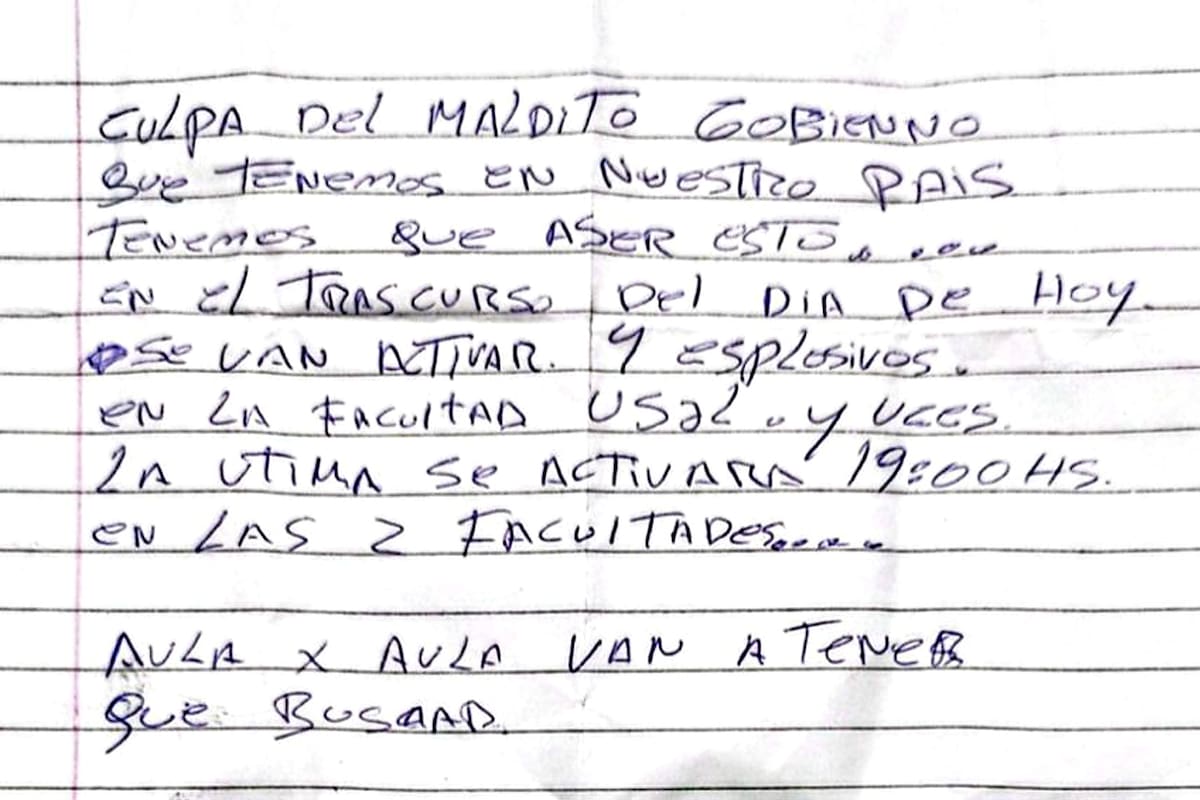 CULPA DEL MALDITO GOBIENNO
QUE TENEMOS EN NUESTRO PAIS
TENEMOS QUE ASER ESTO......
EN EL TRASCURSO DEL DIA DE HOY.
SE VAN ACTIVAR. 9 ESPLOSIVOS.
EN LA FACULTAD USAL. Y UCES.
LA UTIMA SE ACTIVARA 19:00 HS.
EN LAS 2 FACULTADES.....
AULA X AULA VAN A TENER
QUE BUSCAR.